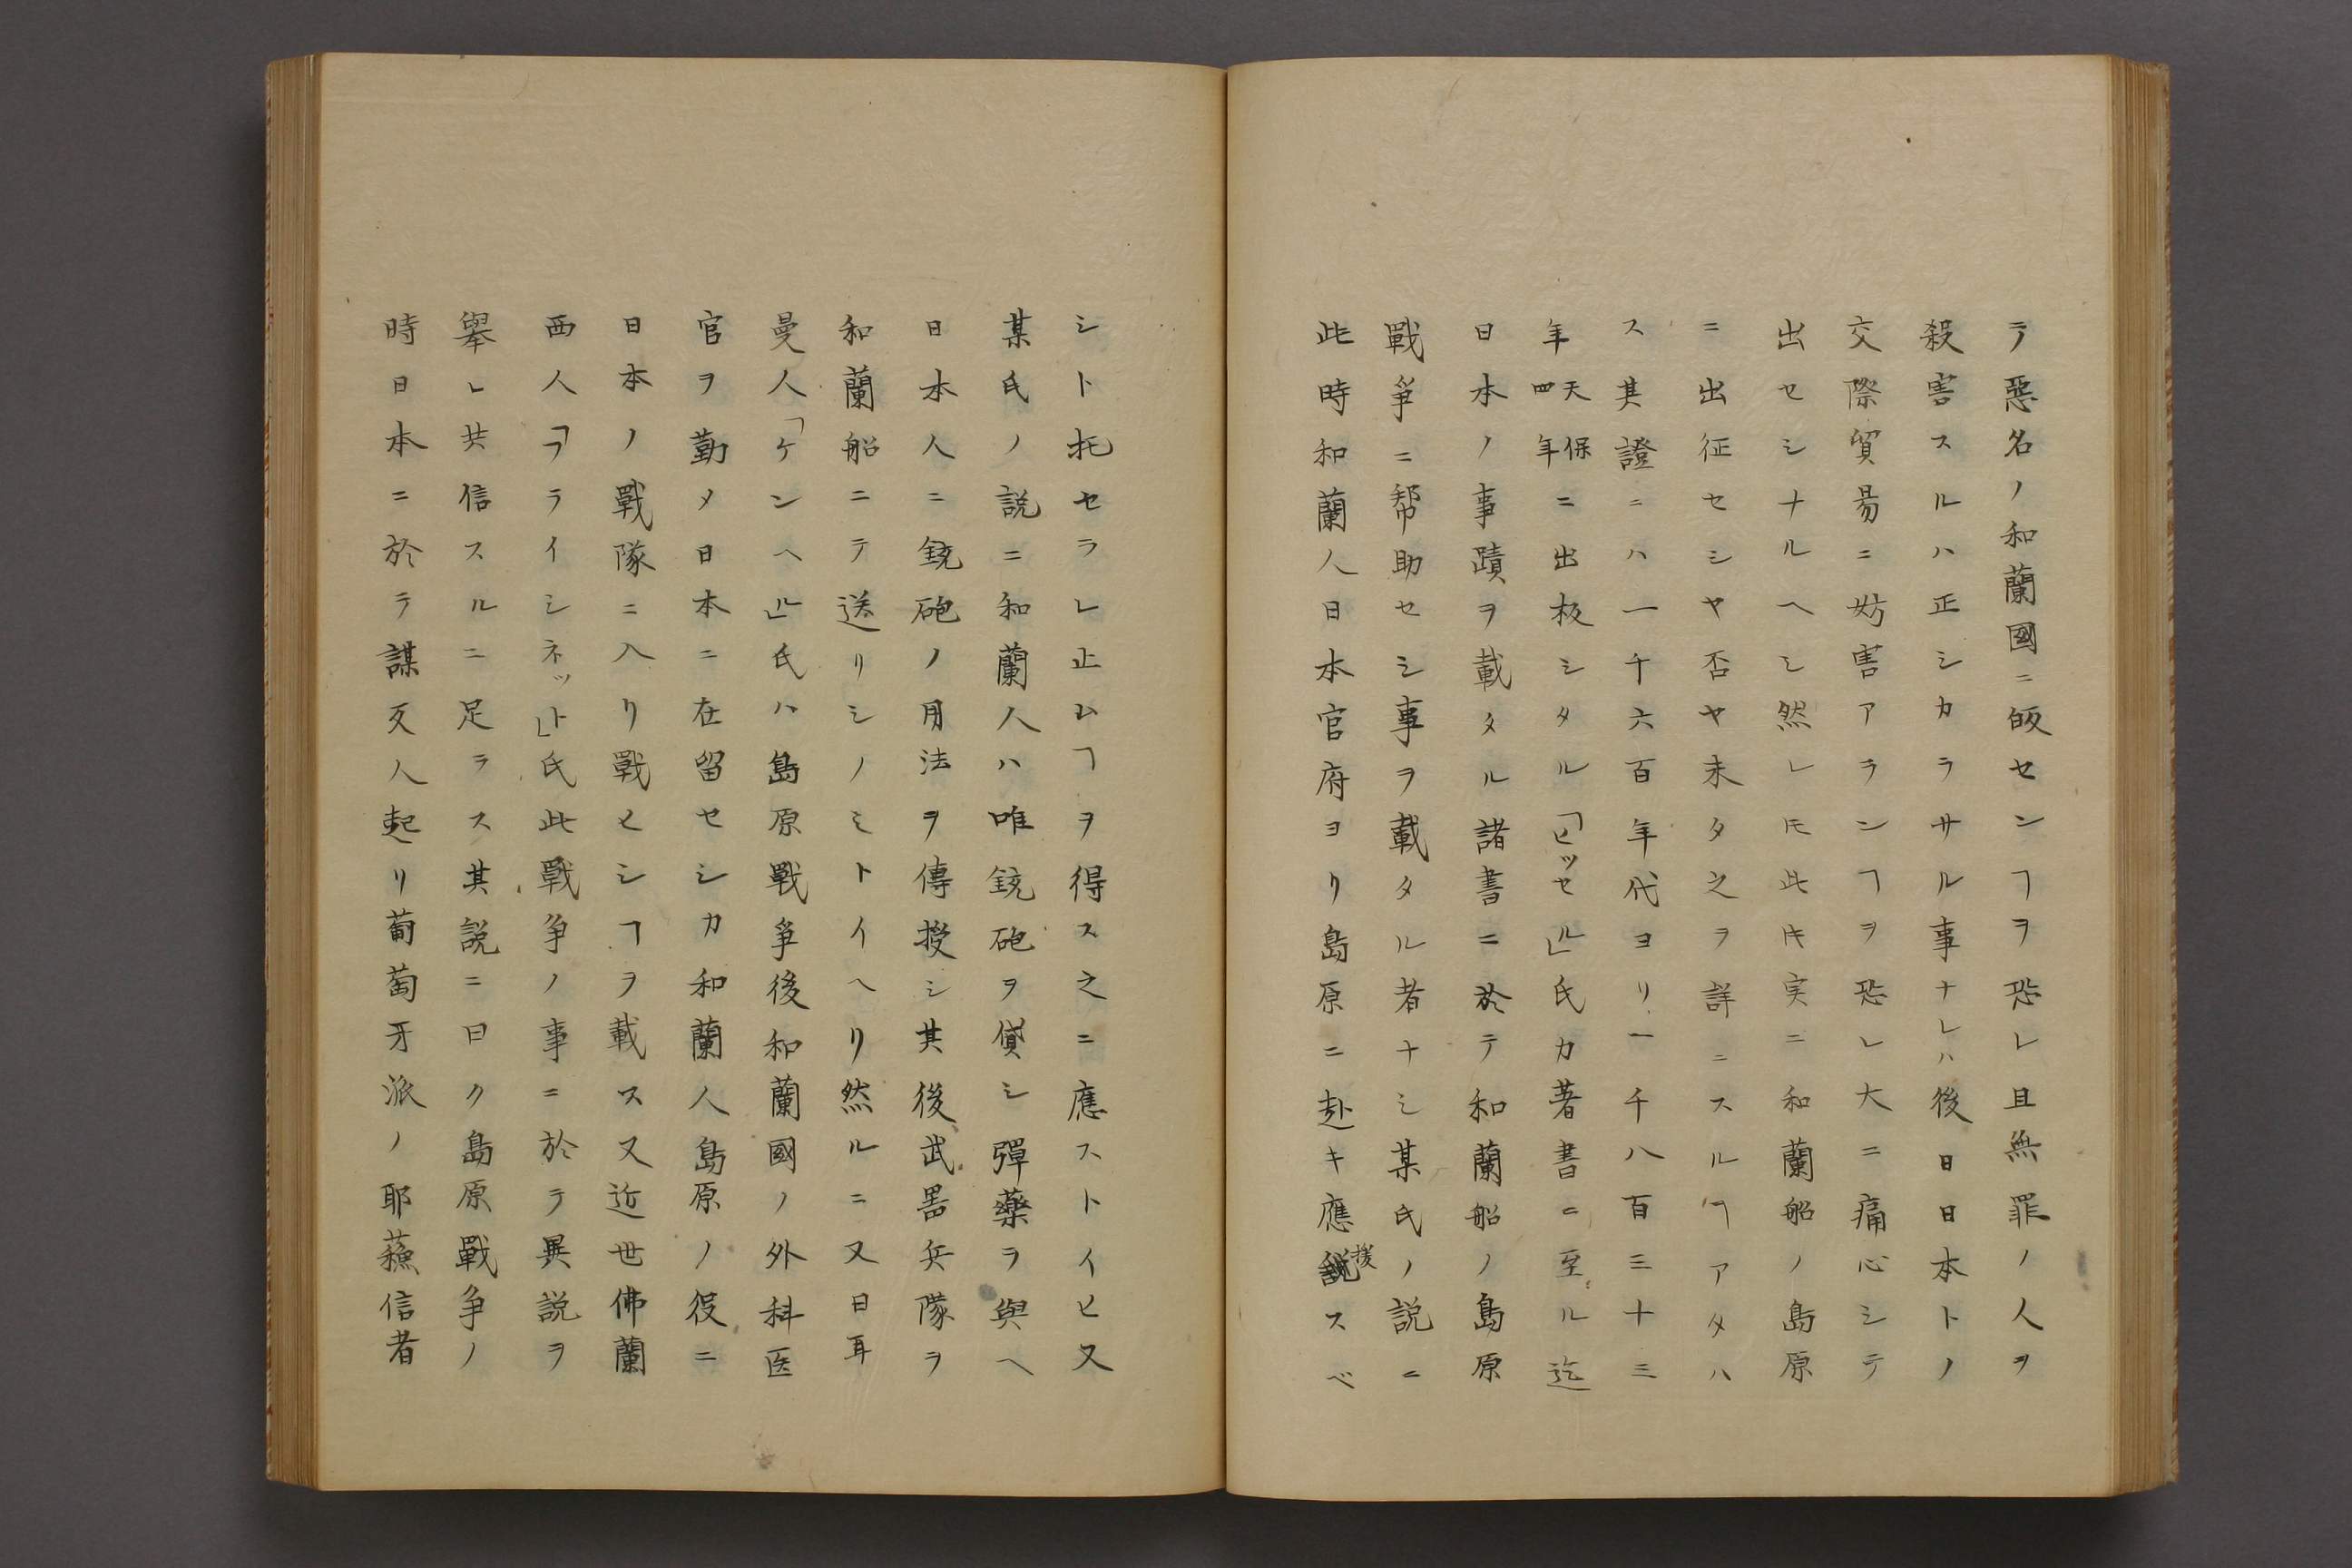 テ惡名ノ和蘭國ニ皈センヿヲ恐レ且無罪ノ人ヲ
殺害スルハ正シカラサル事ナレハ後日日本トノ
交際貿易ニ妨害アランヿヲ恐レ大ニ痛心シテ
出セシナルヘシ然レ𪜈此時実ニ和蘭船ノ島原
ニ出征セシヤ否ヤ未タ之ヲ詳ニスルヿアタハ
ス其證ニハ一千六百年代ヨリ一千八百三十三
年天保四年ニ出板シタル「ヒッセル」氏カ著書ニ至ル迄
日本ノ事蹟ヲ載タル諸書ニ於テ和蘭船ノ島原
戰爭ニ幇助セシ事ヲ載タル者ナシ某氏ノ説ニ
此時和蘭人日本官府ヨリ島原ニ赴キ應援スベ
シト托セラレ止ムヿヲ得ス之ニ應ストイヒ又
某氏ノ説ニ和蘭人ハ唯銃砲ヲ貸シ彈藥ヲ與ヘ
日本人ニ銃砲ノ用法ヲ傳授シ其後武噐兵隊ヲ
和蘭船ニテ送リシノミトイヘリ然ルニ又日耳
曼人「ケンヘル」氏ハ島原戰爭後和蘭國ノ外科医
官ヲ勤メ日本ニ在留セシカ和蘭人島原ノ役ニ
日本ノ戰隊ニ入リ戰ヒシヿヲ載ス又近世佛蘭
西人「フライシネット」氏此戰争ノ事ニ於テ異説ヲ
舉レ共信スルニ足ラス其説ニ曰ク島原戰争ノ
時日本ニ於テ謀反人起リ葡萄牙派ノ耶蘓信者